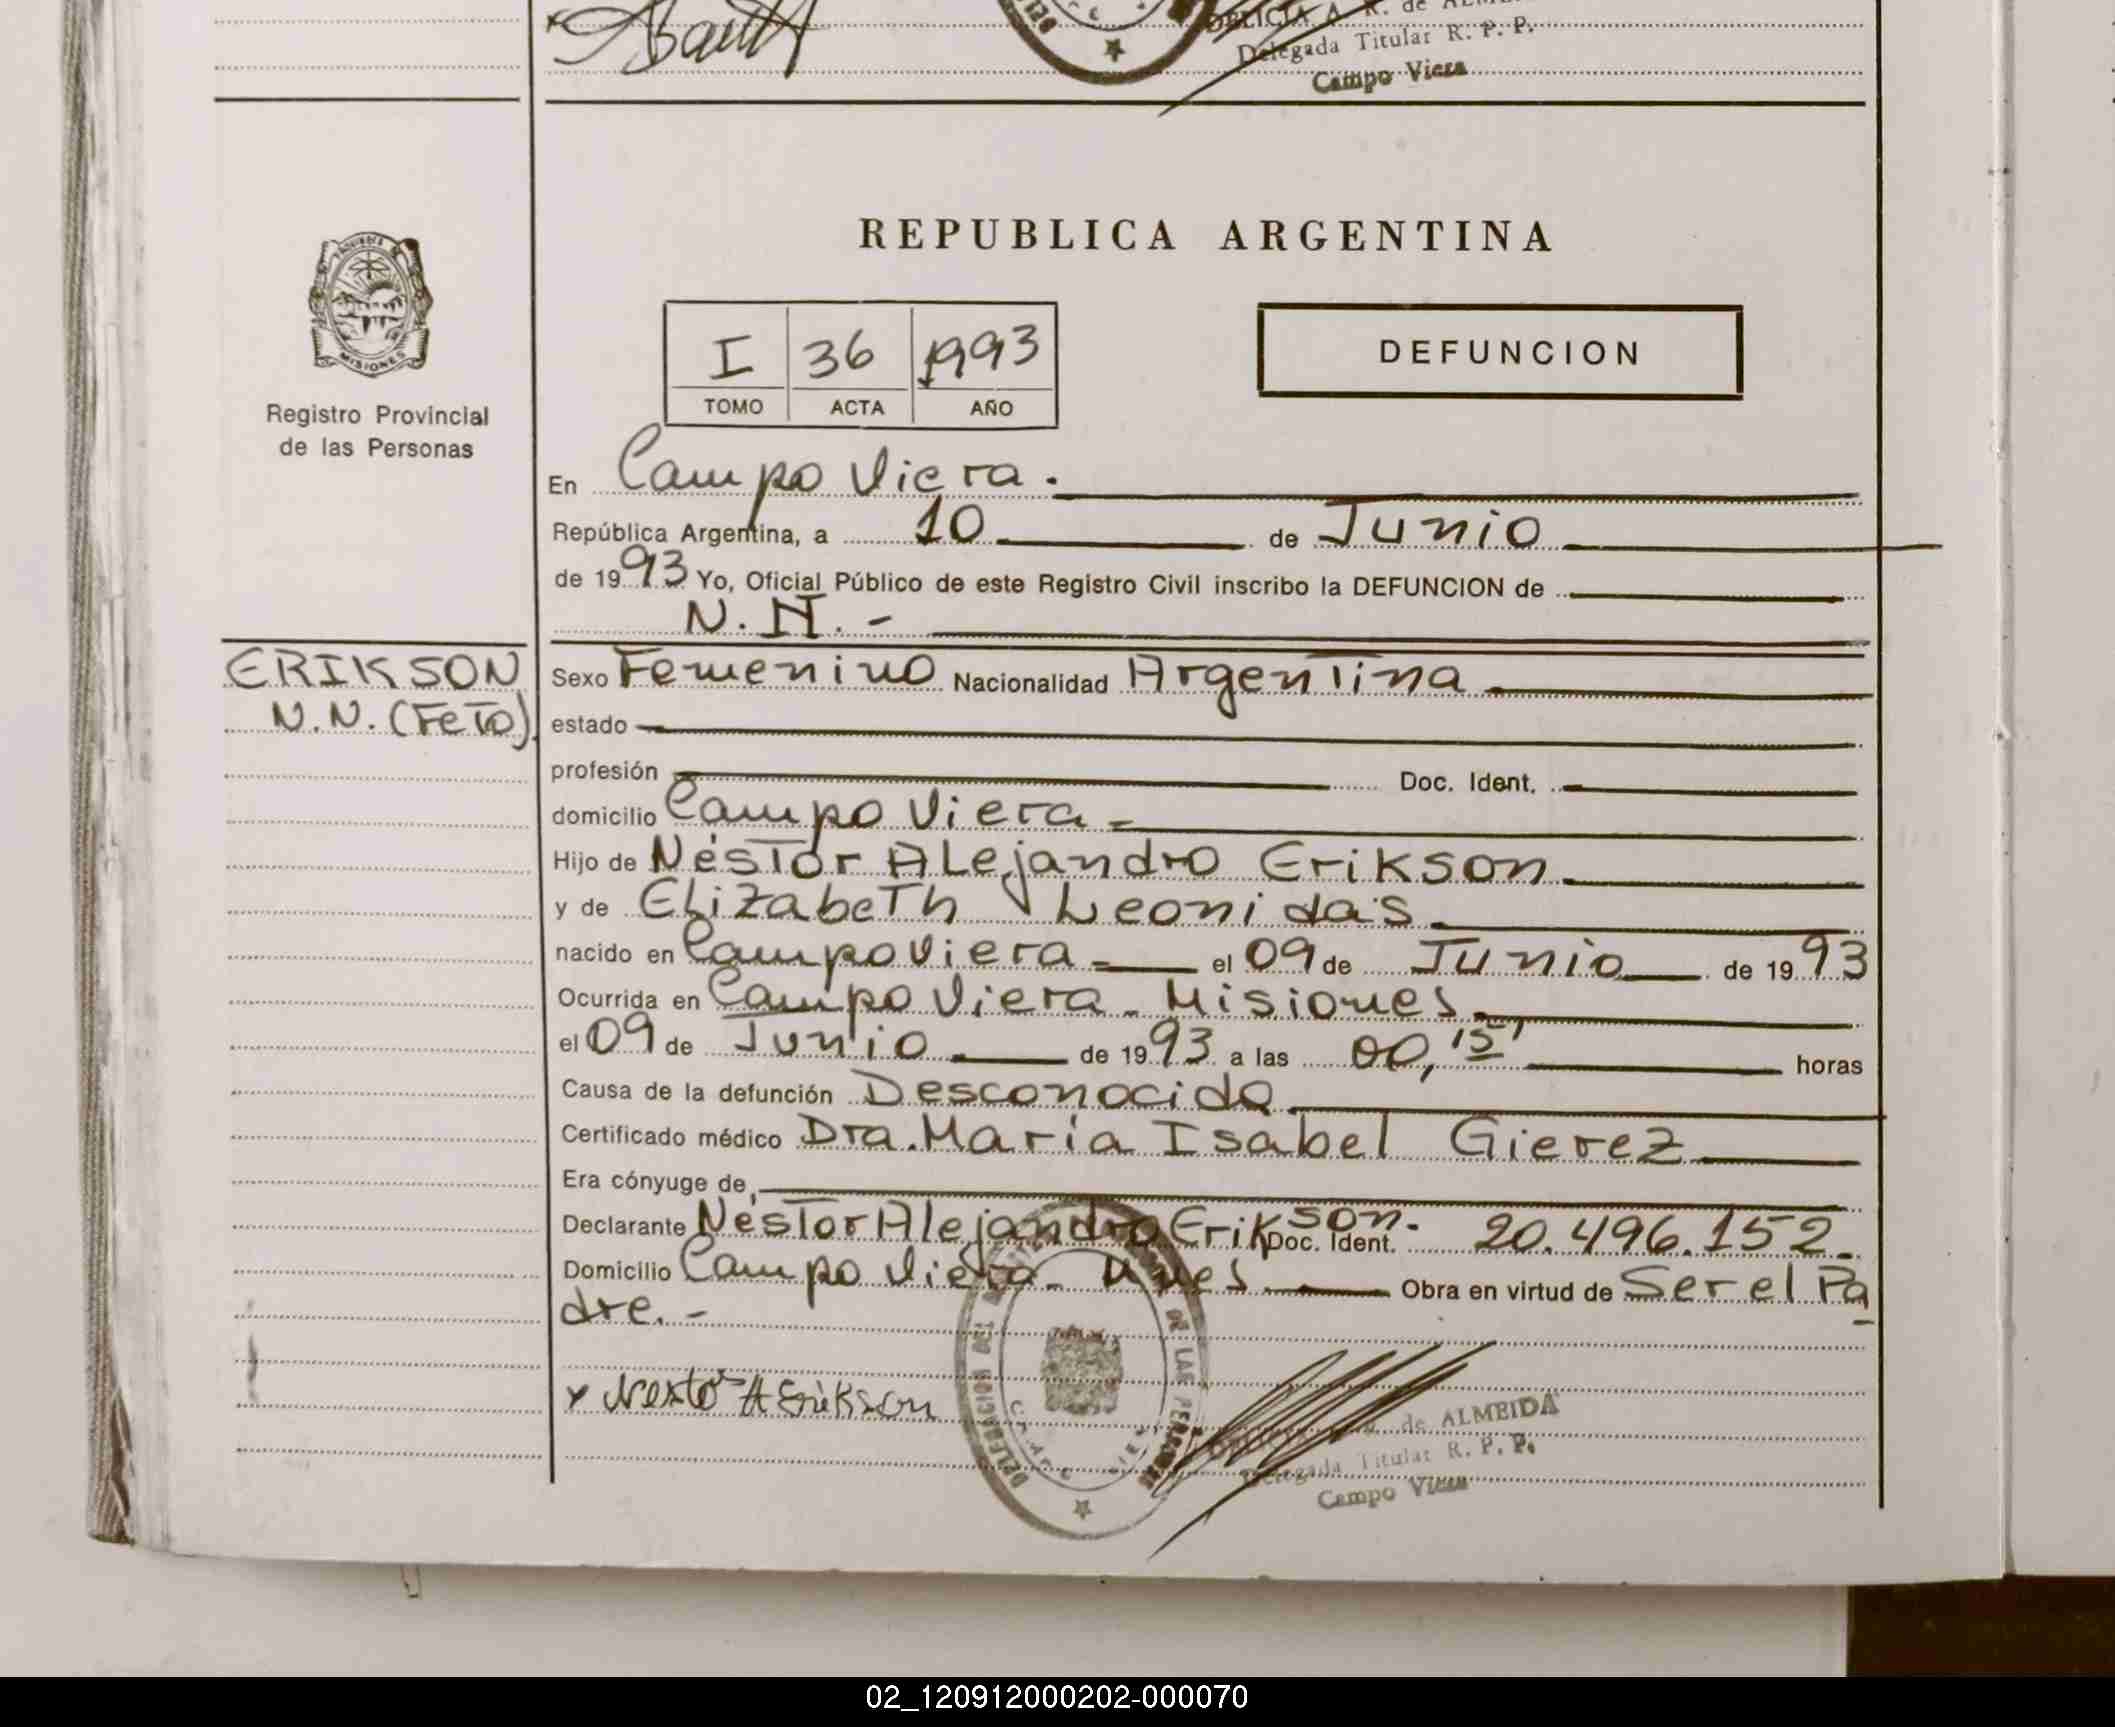 DELICIA A. R. de
Delegada Titular R. P. P.
Campo Viera
REPUBLICA ARGENTINA
MISIONES
Registro Provincial
de las Personas
I 36 1993
TOMO ACTA AÑO
DEFUNCION
En Campo Viera.
República Argentina, a 10 de Junio
de 1993 Yo, Oficial Público de este Registro Civil inscribo la DEFUNCION de
N. N. -
ERIKSON
N.N. (FeTo).
Sexo Femenino Nacionalidad Argentina
estado
profesión Doc. Ident.
domicilio Campo Viera
Hijo de Néstor Alejandro Erikson
y de Elizabeth Leonidas
nacido en Campo Viera el 09 de Junio de 1993
Ocurrida en Campo Viera - Misiones
el 09 de Junio de 1993 a las 00,15' horas
Causa de la defunción Desconocida
Certificado médico Dra. María Isabel Gierez
Era cónyuge de
Declarante Néstor Alejandro Erikson. Doc. Ident. 20.496.152.
Domicilio Campo Viera - Obra en virtud de Ser el Pa
dre. -
x Nestor A Erikson
DELEGACION DEL DE LAS PERSONAS
de ALMEIDA
Delegada Titular R. P. P.
Campo Viera
02_120912000202-000070